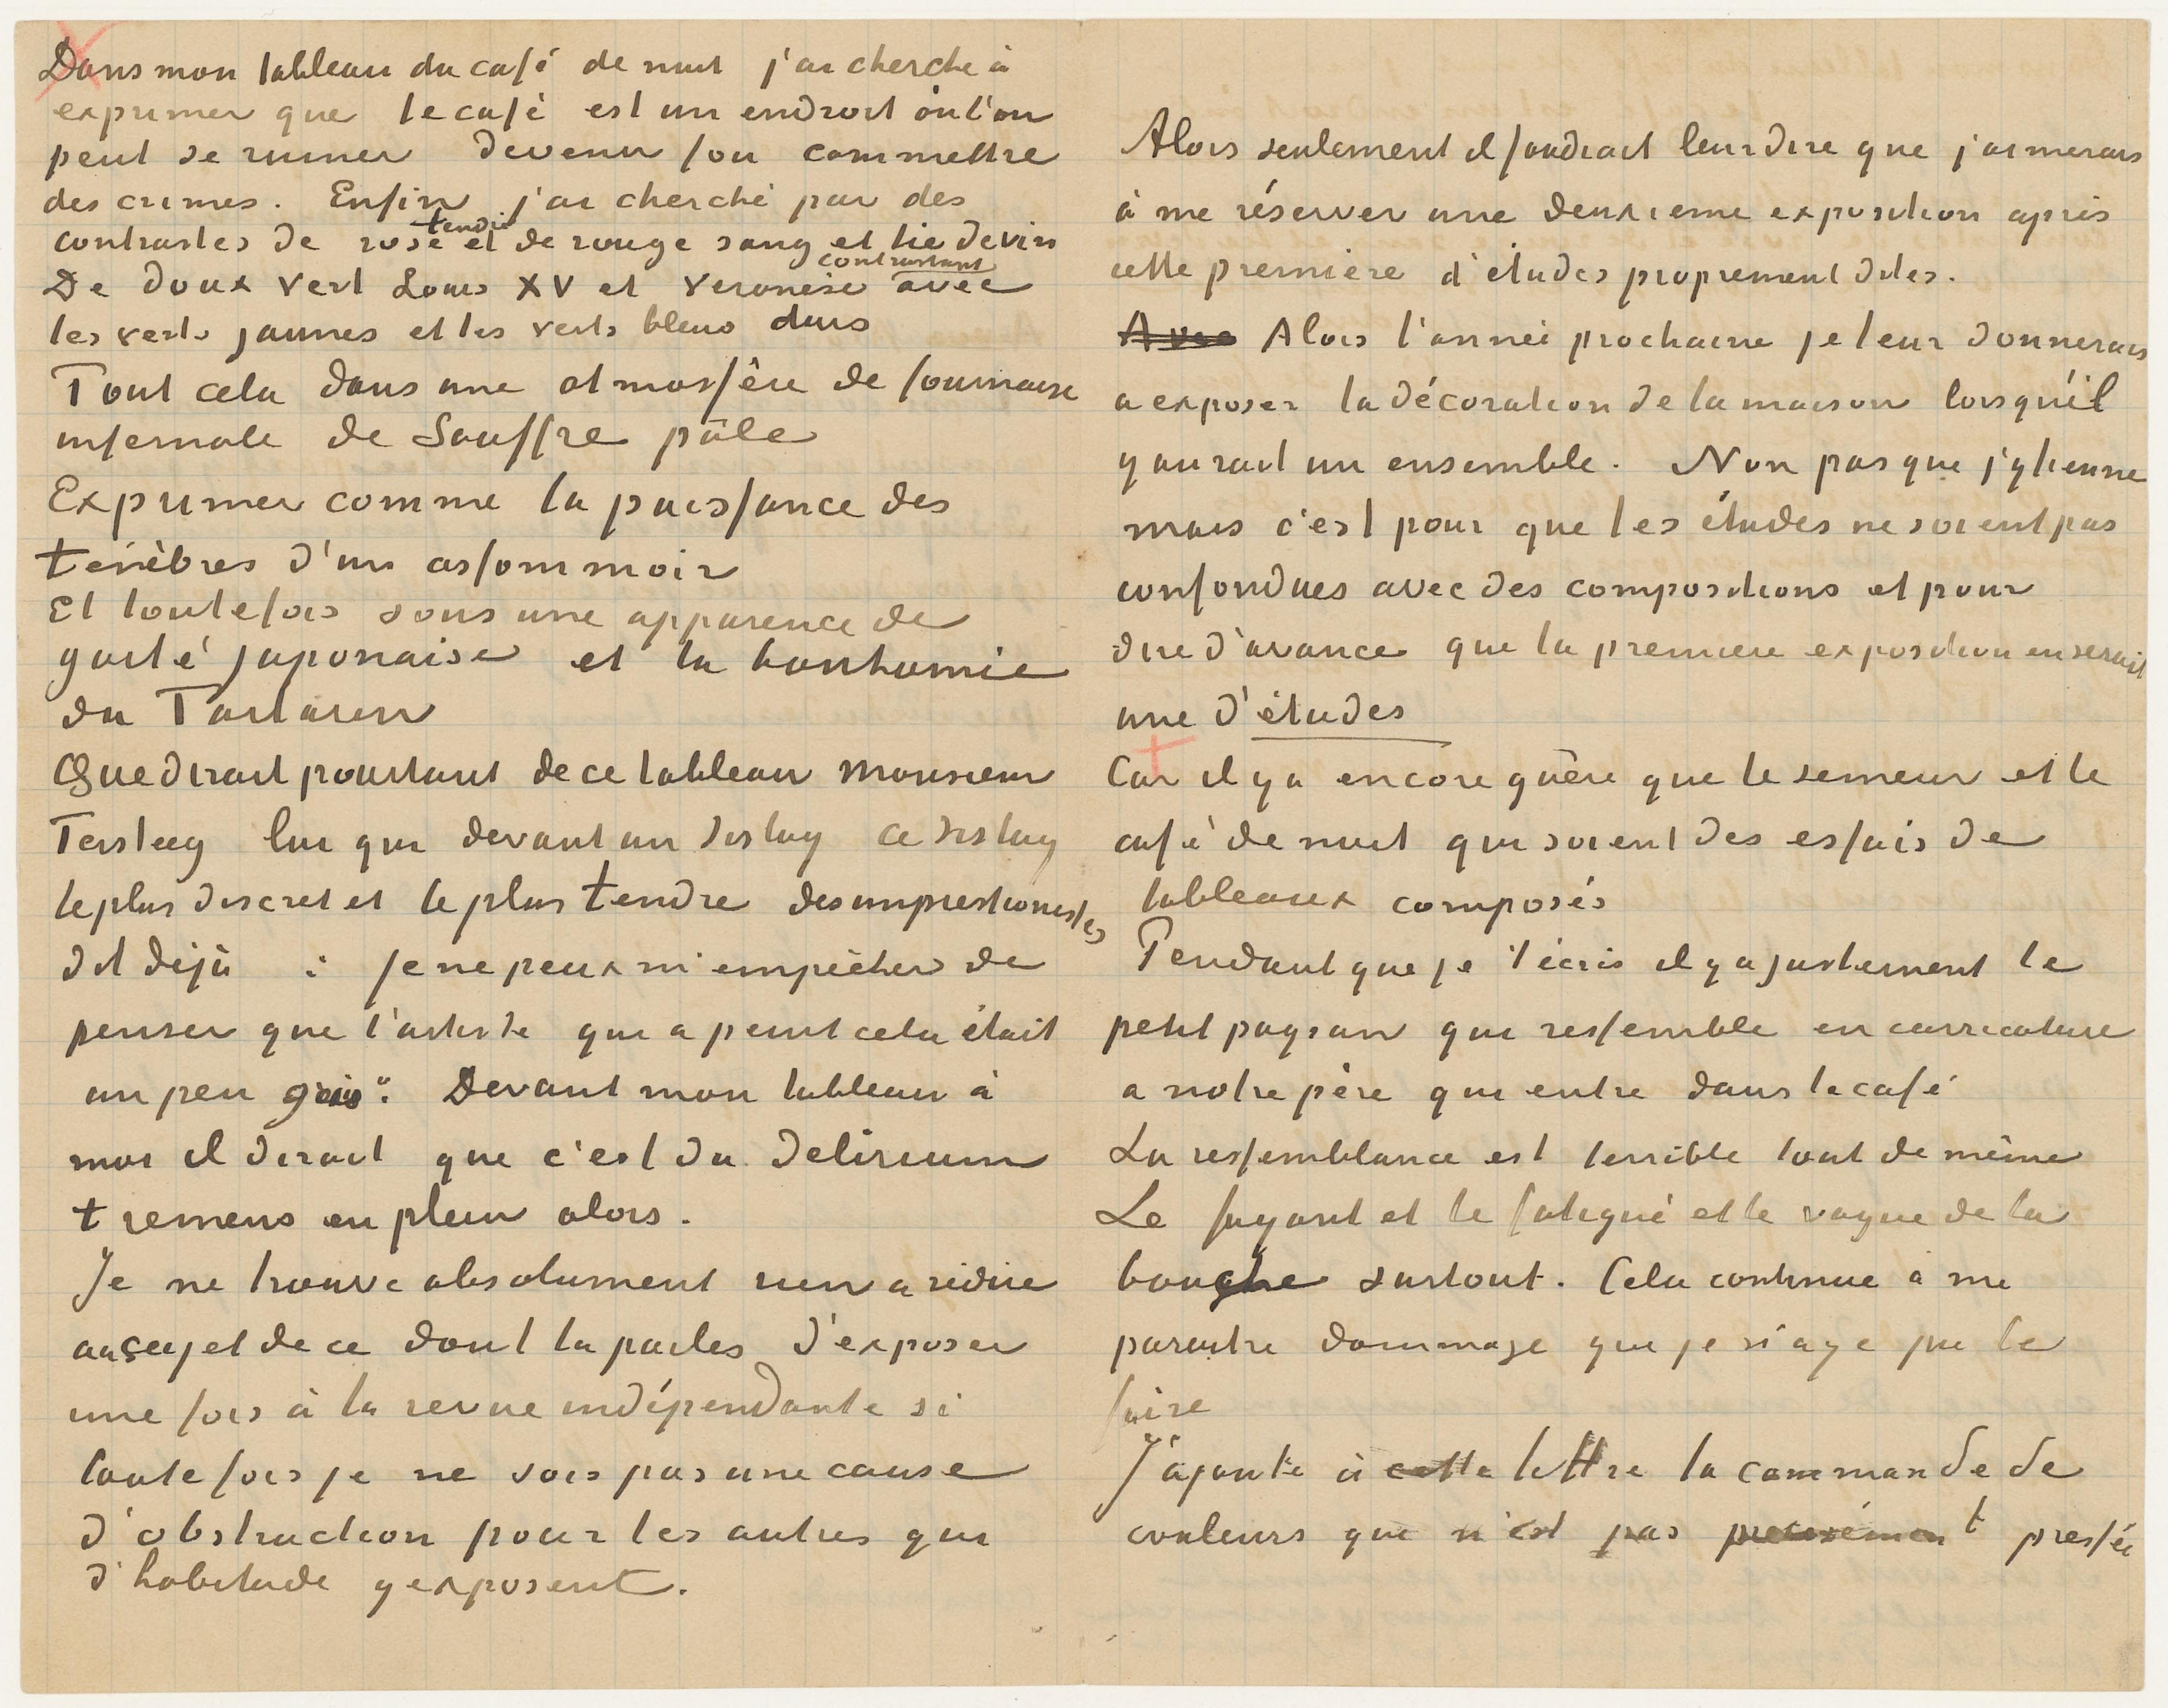 Dans mon tableau du café de nuit j'ai cherché à
exprimer que le café est un endroit où l'on
peut se ruiner devenir fou commettre
des crimes. Enfin j'ai cherché par des
contrastes de rose tendre et de rouge sang et lie de vin
De doux vert Louis XV et Veronèse contrastant avec
les verts jaunes et les verts bleus durs
Tout cela dans une atmosfère de fournaise
infernale de Souffre pâle
Exprimer comme la puissance des
ténèbres d'un assommoir
Et toutefois sous une apparence de
gaité japonaise et la bonhomie
du Tartarin
Que dirait pourtant de ce tableau monsieur
Tersteeg lui qui devant un Sisley ce Sisley
le plus discret et le plus tendre des impressionistes
dit déjà : je ne peux m'empêcher de
penser que l'artiste qui a peint cela était
un peu gris". Devant mon tableau à
moi il dirait que c'est du Delirium
tremens en plein alors.
Je ne trouve absolument rien a redire
au sujet de ce dont tu parles d'exposer
une fois à la revue indépendante si
toute fois je ne sois pas une cause
d'obstruction pour les autres qui
d'habitude y exposent.
Alors seulement il faudrait leur dire que j'aimerais
à me réserver une deuxieme exposition après
cette première d'études proprement dites.
Avec Alors l'année prochaine je leur donnerais
a exposer la décoration de la maison lorsqu'il
y aurait un ensemble. Non pas que j'y tienne
mais c'est pour que les études ne soient pas
confondues avec des compositions et pour
dire d'avance que la premiere exposition en serait
une d'études
Car il y a encore guère que le semeur et le
café de nuit qui soient des essais de
tableaux composés
Pendant que je t'écris il y a justement le
petit paysan qui ressemble en carricature
a notre père qui entre dans le café
La ressemblance est terrible tout de même
Le fuyant et le fatigué et le vague de la
bouche surtout. Cela continue a me
paraitre dommage que je n'aye pu le
faire
J'ajoute à cette lettre la commande de
couleurs qui n'est pas precisément pressée